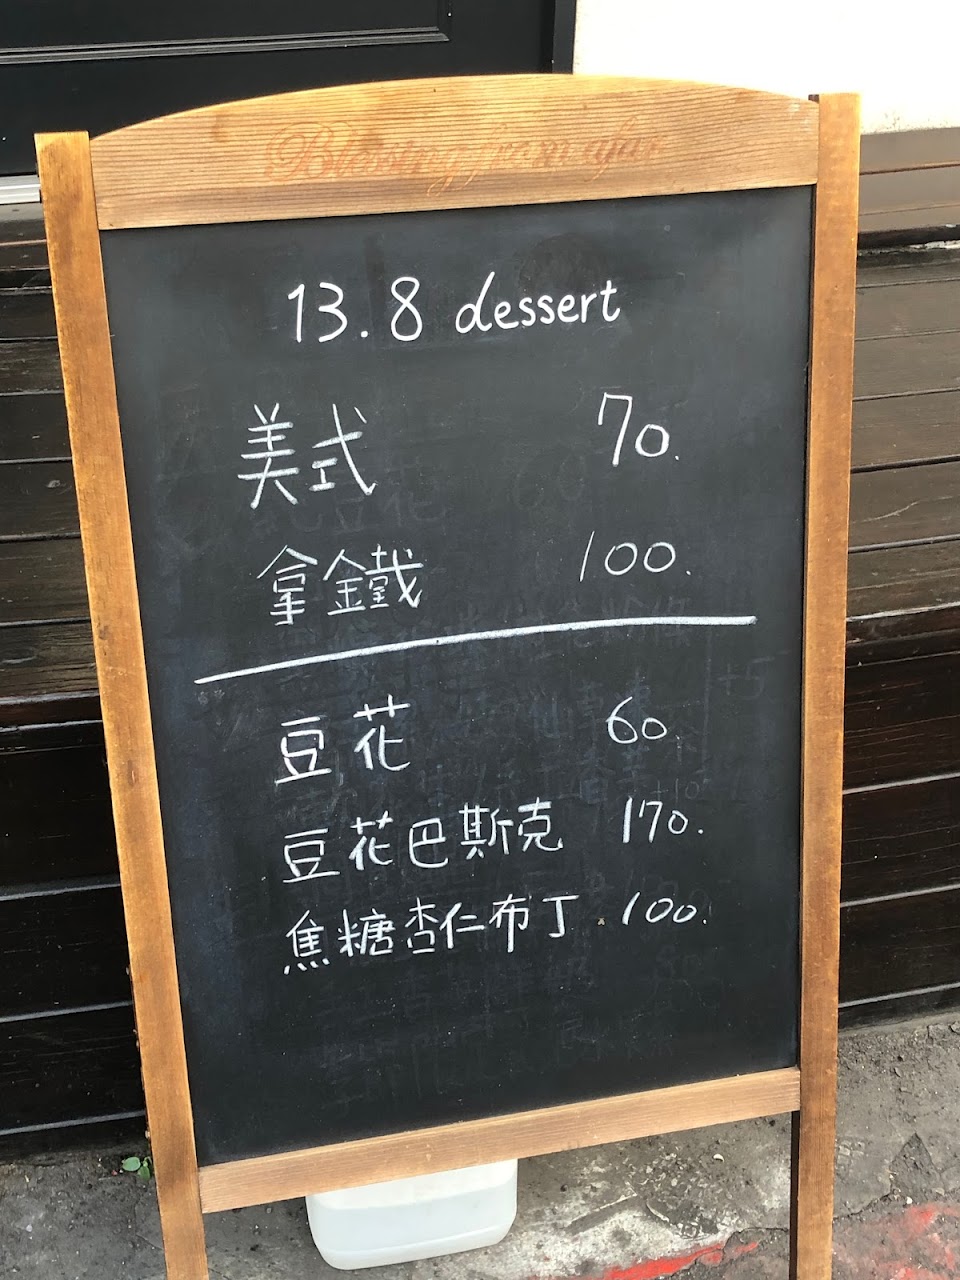 Blessing from afar
13.8 dessert
美式 70.
拿鐵 100.
豆花 60.
豆花巴斯克 170.
焦糖杏仁布丁 100.